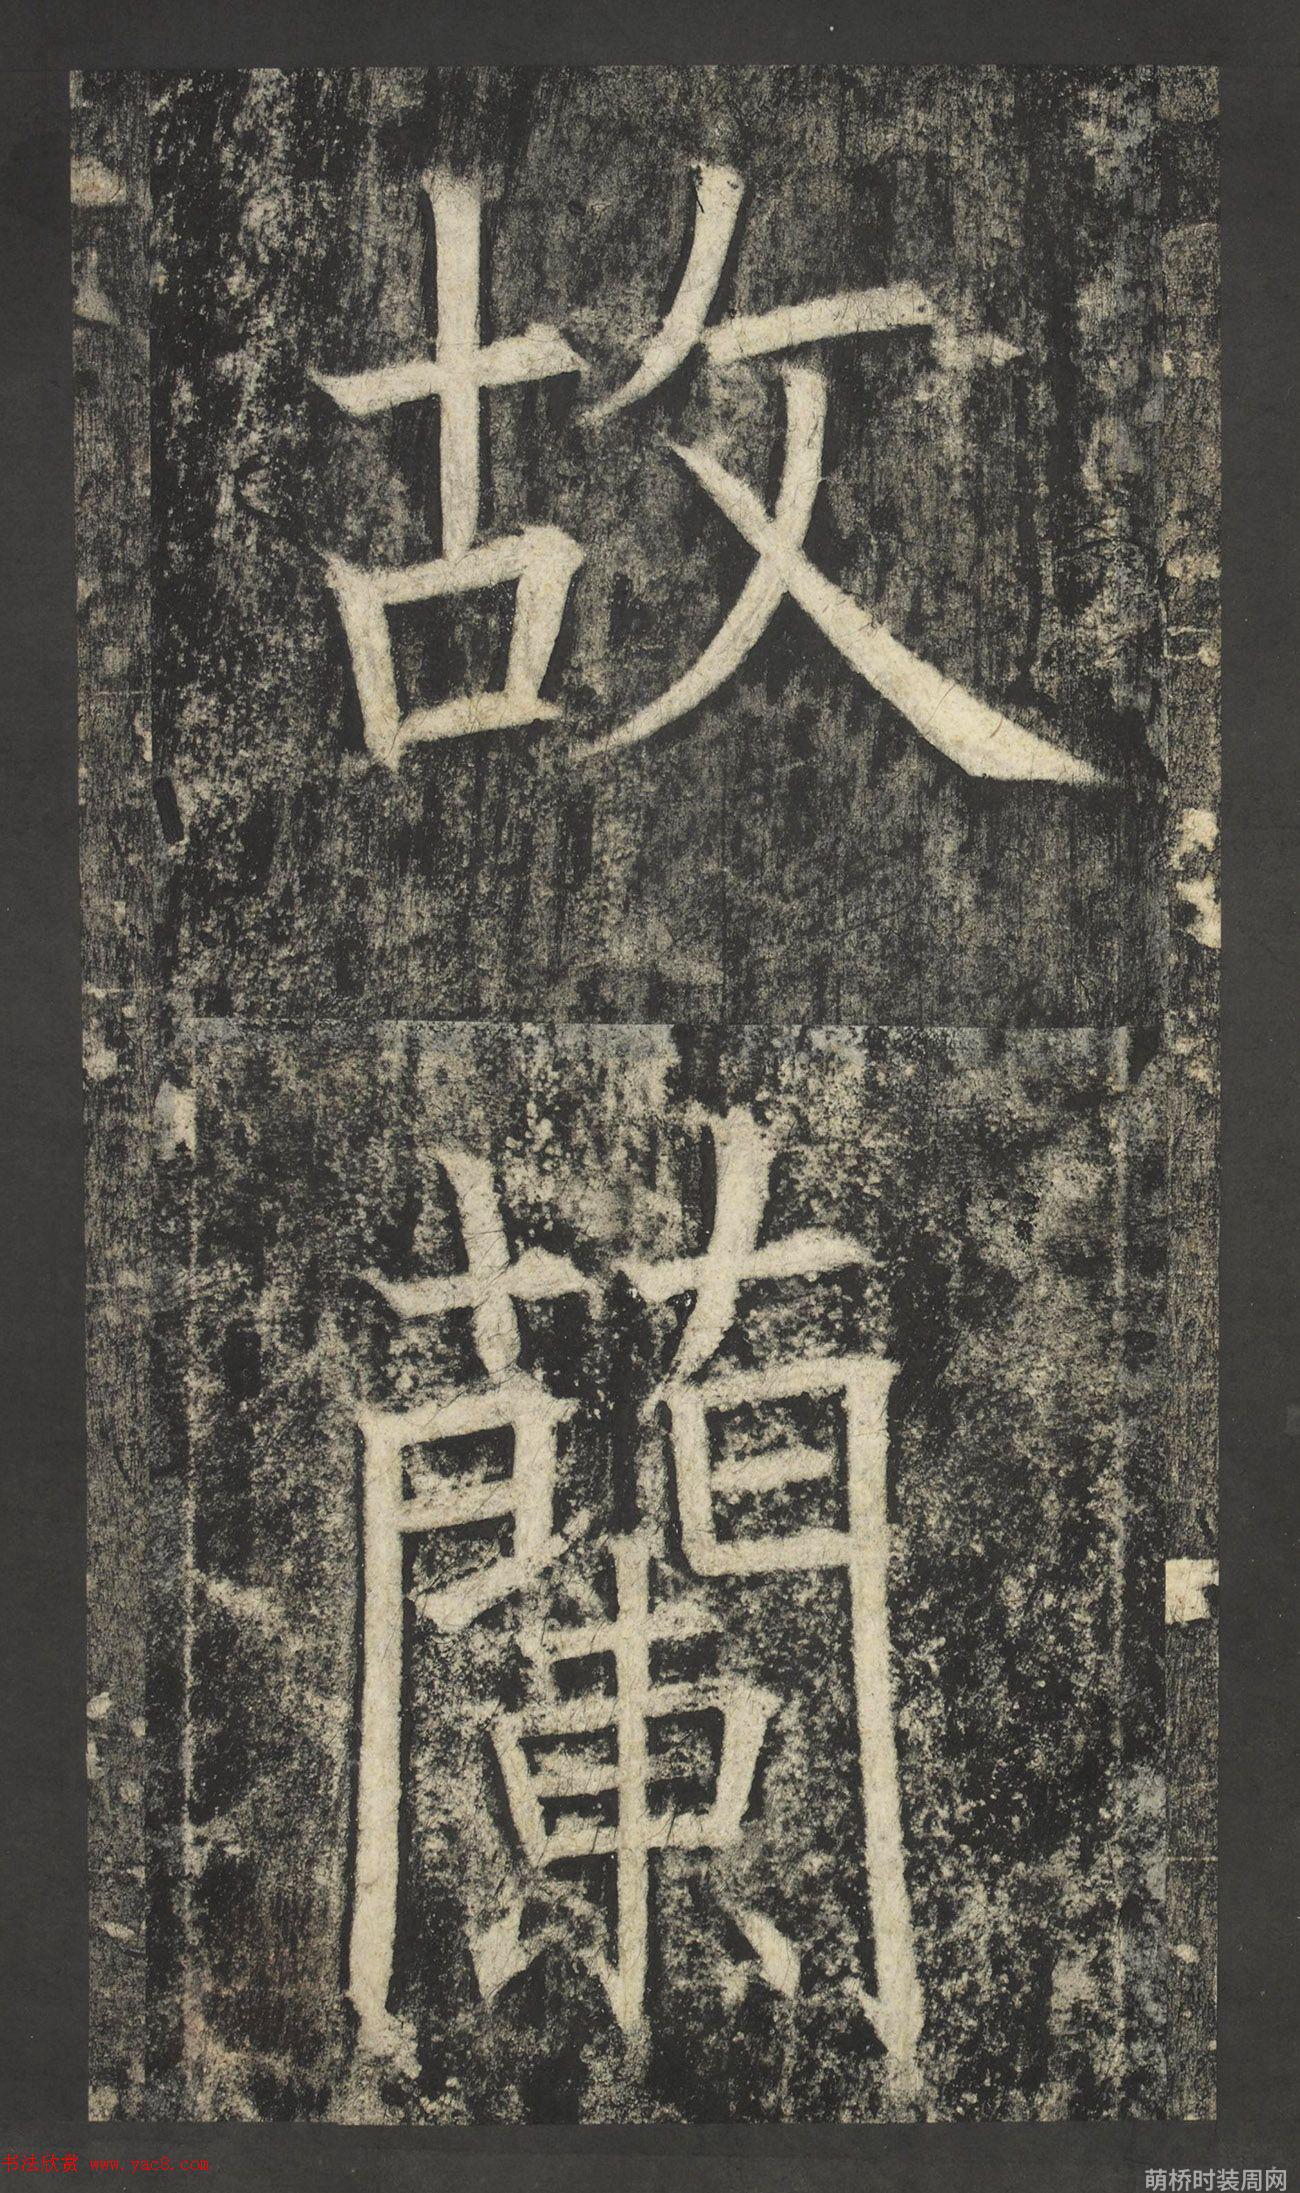 故
蘭
书法欣赏 www.yac8.com
萌桥时装周网